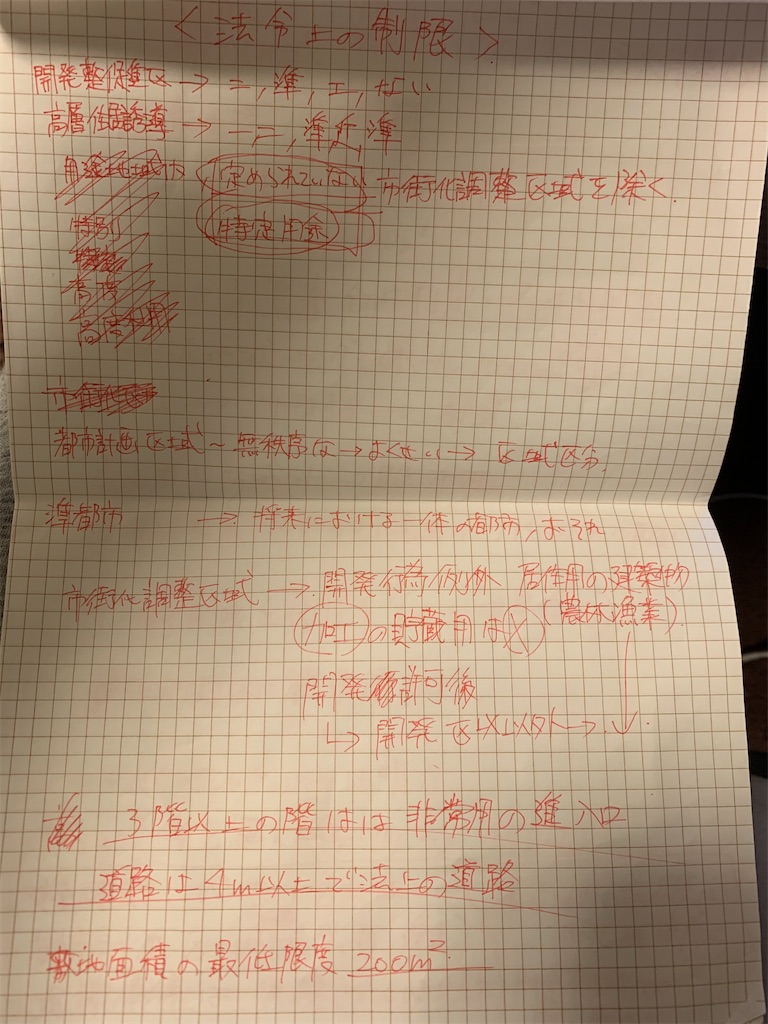 <法令上の制限>
開発整促進区 → 二, 準, 工, ない
高層住居誘導 → 一二, 準近, 準
用途地域が 定められていない 市街化調整区域を除く
特別 特定用途
高度
高度利用
都市計画区域 ~ 無秩序な → よくせい → 区域区分
準都市 → 将来における一体の都市, おそれ
市街化調整区域 → 開発行為例外 居住用の建築物
加工の貯蔵用は× (農林漁業)
開発許可後
↳ 開発区域以外→
3階以上の階はは非常用の進入口
道路は4m以上で法上の道路
敷地面積の最低限度 200m²